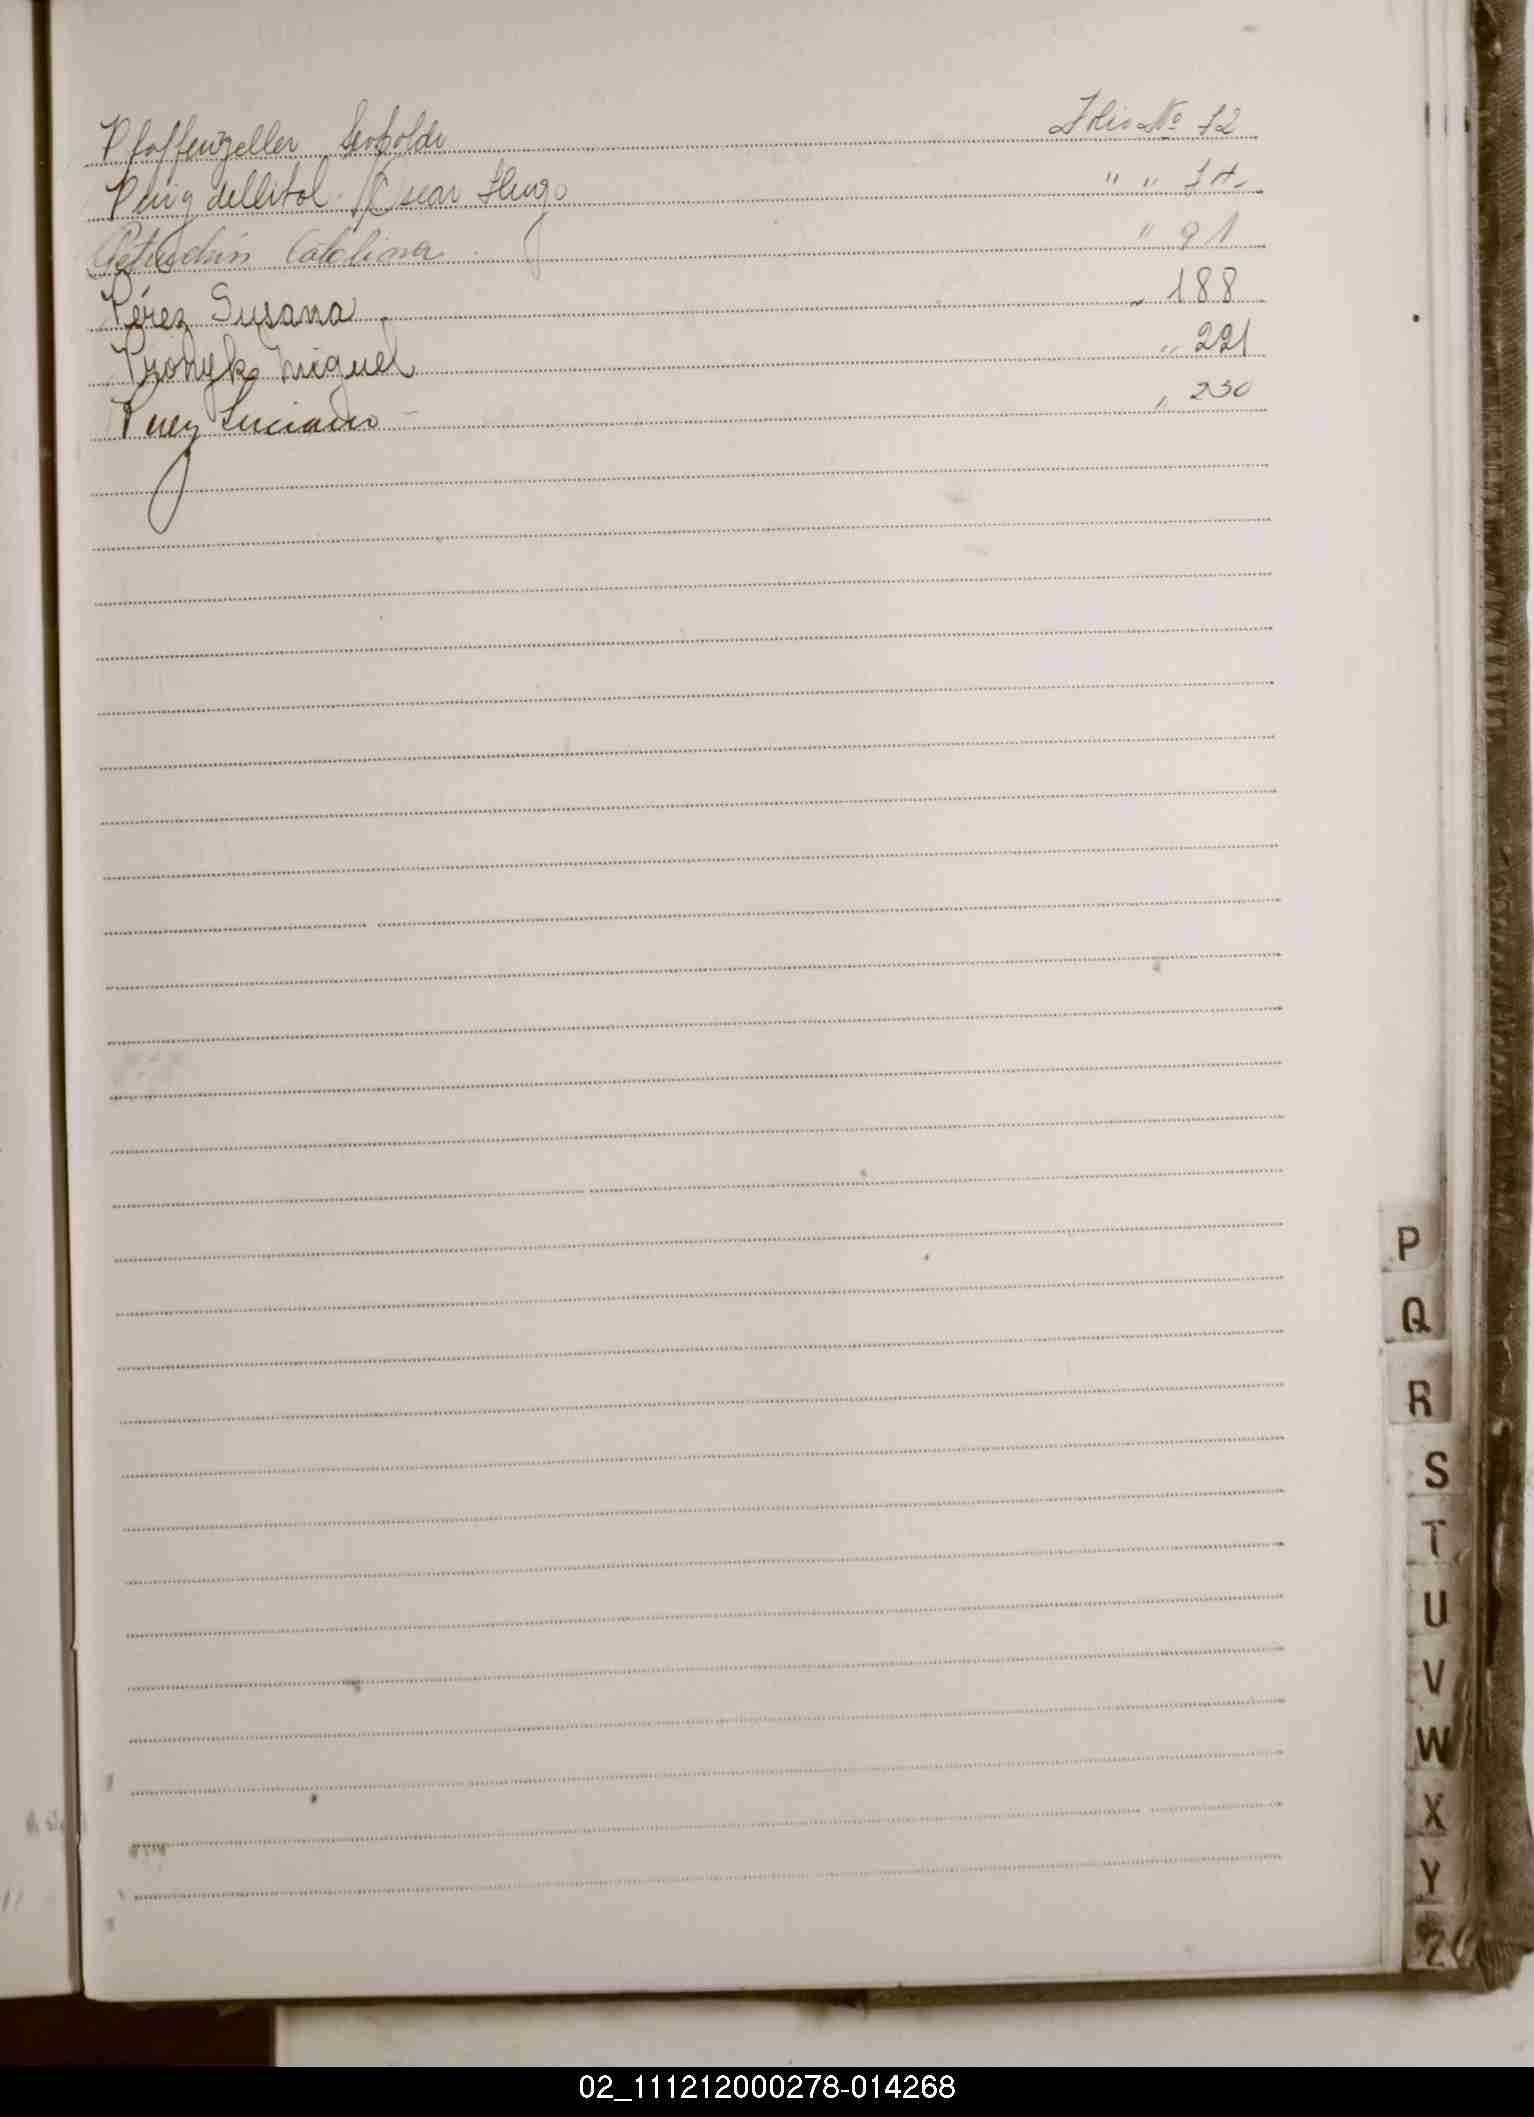 Pfaffenzeller Leopoldo Folio Nº 72
Puig dellitol Oscar Hugo " "
Catalina " 91
Pérez Susana " 188
Miguel " 221
Perez Luciano " 230
P
Q
R
S
T
U
V
W
X
Y
Z
02_111212000278-014268